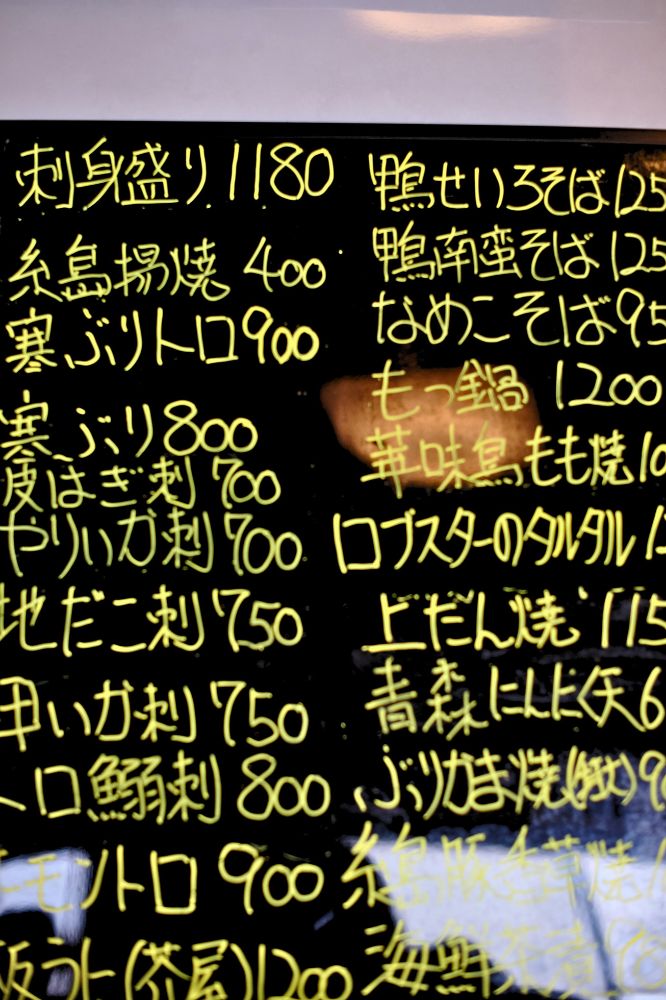 刺身盛り 1180
糸島揚焼 400
寒ぶりトロ 900
寒ぶり 800
皮はぎ刺 700
やりいか刺 700
地だこ刺 750
甲いか刺 750
トロ鰯刺 800
ーモントロ 900
板うに(芥屋) 1200
鴨せいろそば 125
鴨南蛮そば 125
なめこそば 95
もつ鍋 1200
華味鳥もも焼 10
ロブスターのタルタル 1
上だん焼 115
青森にんにく天 6
ぶりかま焼 9
糸島豚香草焼 1
海鮮茶漬